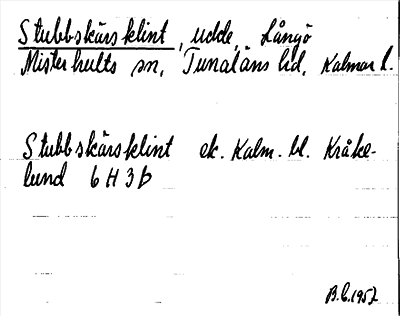 Stubbskärsklint, udde, Långö
Misterhults sn, Tunaläns hd, Kalmar l.
Stubbskärsklint ek. Kalm. bl. Kråke-
lund 6 H 3 b